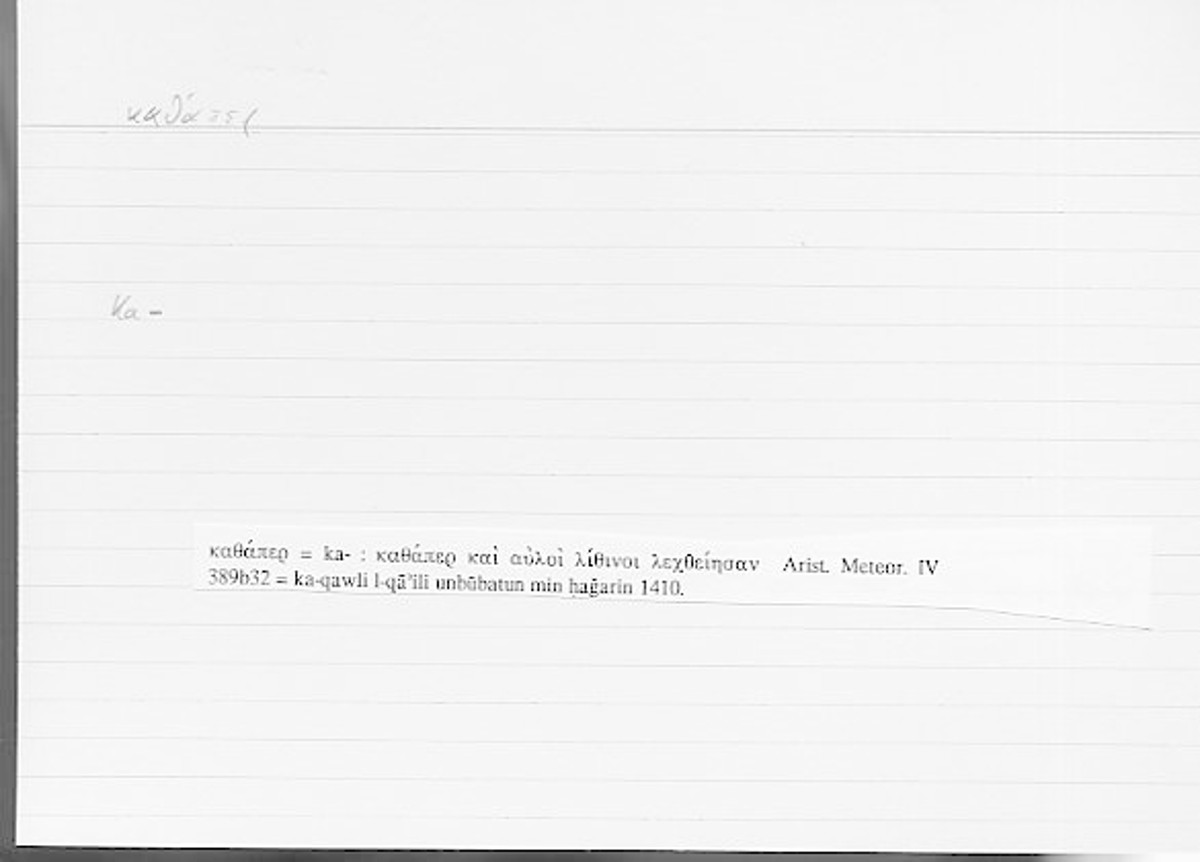 καθάπερ
ka-
καθάπερ = ka- : καθάπερ καὶ αὐλοὶ λίθινοι λεχθείησαν Arist. Meteor. IV
389b32 = ka-qawli l-qāʾili unbūbatun min ḥaǧarin 1410.